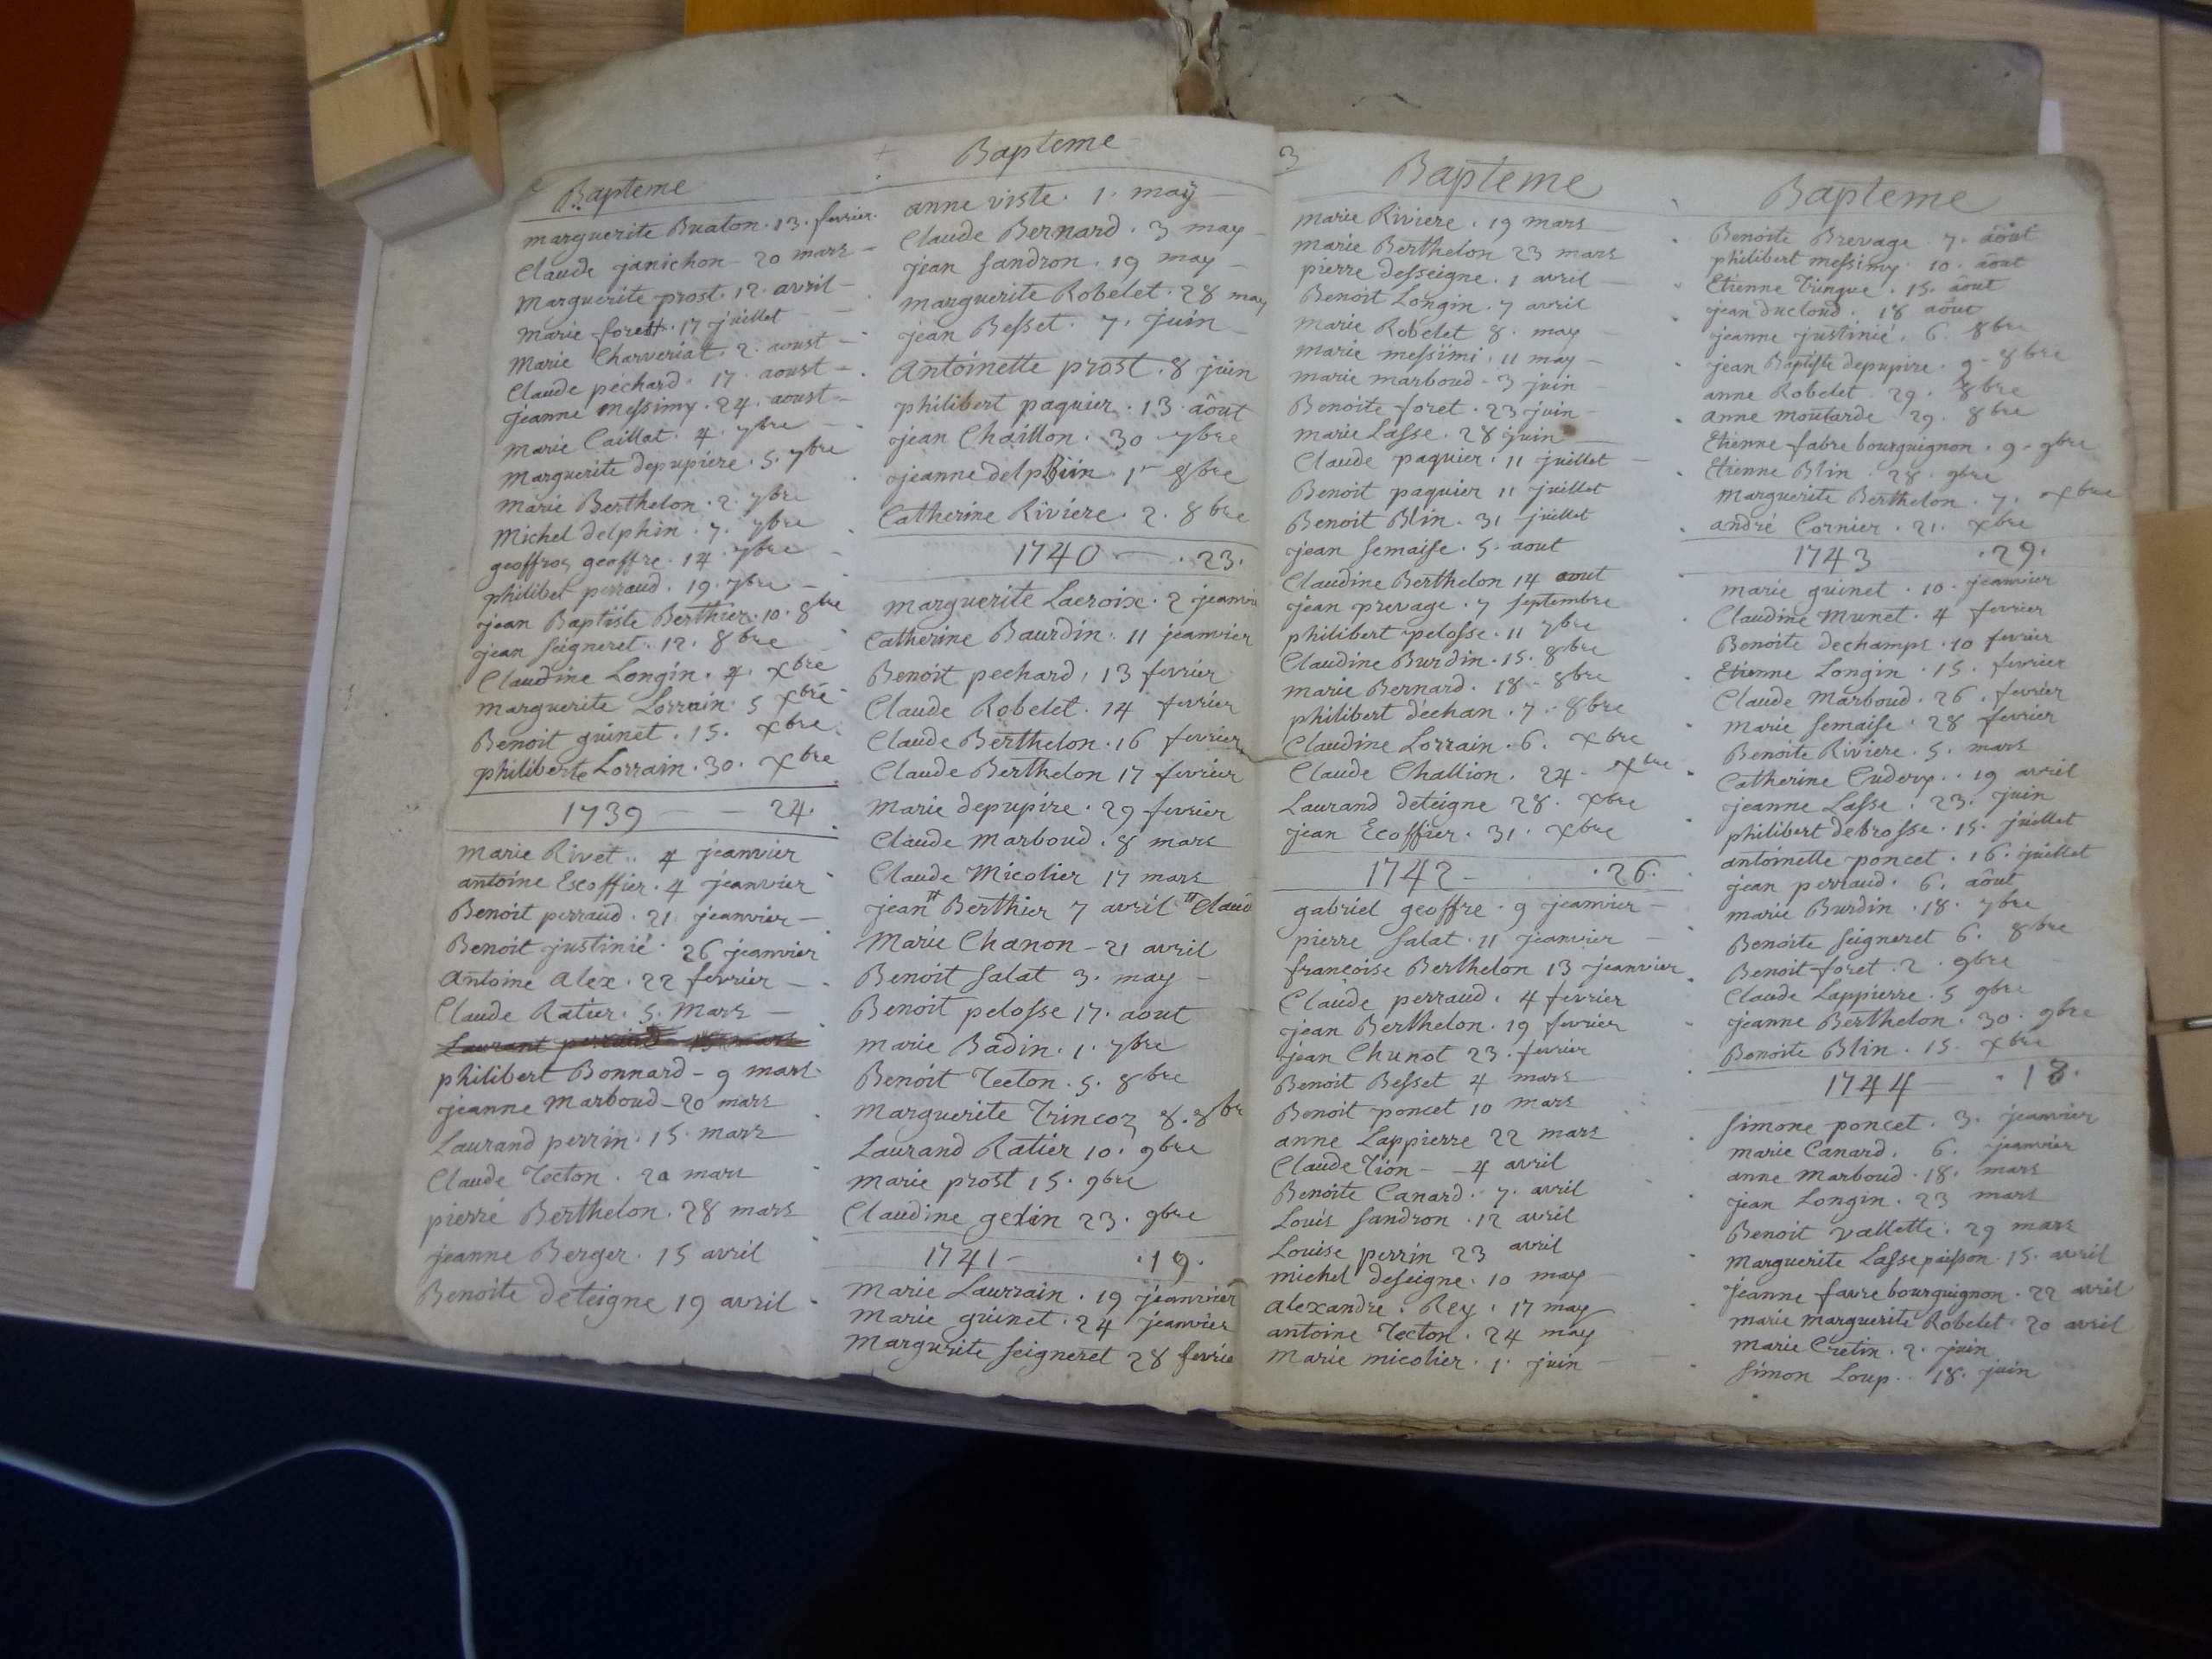 Bapteme
marguerite Buaton . 13 . fevrier .
Claude janichon - 20 mars -
Marguerite prost . 12 . avril -
Marie forest . 17 juillet
Marie Charveriat . 2 . aoust -
Claude pechard . 17 . aoust -
jeanne Messimy . 24 . aoust -
Marie Caillat . 4 . 7bre
Marguerite depupiere . 5 . 7bre
Marie Berthelon . 2 . 7bre
Michel delphin . 7 . 7bre
geoffroy geoffre . 14 . 7bre
philibet perraud . 19 . 7bre -
jean Baptiste Berthier . 10 . 8bre
jean seigneret . 12 . 8bre
Claudine Longin . 4 . xbre
marguerite Lorrain . 5 xbre
Benoit guinet . 15 . xbre
philiberte Lorrain . 30 . xbre
1739 - 24 .
Marie Rivet . . 4 jeanvier
antoine Escoffier . 4 jeanvier
Benoit perraud . 21 jeanvier -
Benoit justinié . 26 jeanvier
Antoine Alex . 22 fevrier -
Claude Ratier . 5 . Mars -
Laurant 15 mars
philibert Bonnard - 9 mars
jeanne Marboud - 20 mars
Laurand perrin . 15 . mars
Claude Tecton . 20 mars
pierre Berthelon . 28 mars
jeanne Berger . 15 avril
Benoite deteigne 19 avril
Bapteme
anne viste . 1 . may
Claude Bernard . 3 may -
jean sandron . 19 may -
marguerite Robelet . 28 may
jean Besset . 7 . juin
Antoinette prost . 8 juin
philibert paquier . 13 . aôut
jean Chaillon . 30 7bre
jeanne delphin . 1r 8bre
Catherine Riviere . 2 . 8bre
1740 - . 23 .
marguerite Lacroix . 2 jeanvi
Catherine Baurdin . 11 jeanvier
Benoit pechard , 13 fevrier
Claude Robelet . 14 fevrier
Claude Berthelon . 16 fevrier
Claude Berthelon 17 fevrier
Marie depupire . 29 fevrier
Claude Marboud . 8 mars
Claude Micolier 17 mars
jean # Berthier 7 avril # Claud
Marie Chanon - 21 avril
Benoit salat 3 . may -
Benoit pelosse 17 . aout
marie Badin . 1 . 7bre
Benoit Tecton . 5 . 8bre
Marguerite Trincoz 8 . 8br
Laurand Ratier 10 . 9bre
marie prost 15 . 9bre
Claudine gelin 23 . 9bre
1741 - . 19 .
Marie Laurrain . 19 jeanvier
Marie guinet . 24 jeanvier
Margurite seigneret 28 fevrie
3
Bapteme
marie Riviere . 19 mars
marie Berthelon 23 mars
pierre desseigne . 1 avril
Benoit Longin . 7 avril
marie Robelet 8 . may
marie messimi . 11 may -
marie marboud - 3 juin
Benoite foret . 23 juin -
marie Lasse . 28 juin
Claude paquier . 11 juillet
Benoit paquier 11 juillet
Benoit Blin . 31 juillet
jean semaise . 5 . aout
Claudine Berthelon 14 aout
jean prevage . 7 septembre
philibert pelosse . 11 7bre
Claudine Burdin . 15 . 8bre
marie Bernard . 18 - 8bre
philibert dechan . 7 . 8bre
Claudine Lorrain . 6 . xbre
Claude Challion . 24 - xbre
Laurand deteigne 28 . xbre
jean Ecoffier . 31 . xbre
1742 - . 26 .
gabriel geoffre . 9 jeanvier -
pierre salat . 11 jeanvier -
francoise Berthelon 13 jeanvier
Claude perraud . 4 fevrier
jean Berthelon . 19 fevrier
jean Chunot 23 . fevrier
Benoit Besset 4 mars
Benoit poncet 10 mars
anne Lappierre 22 mars
Claude Tion - - 4 avril
Benoite Canard . 7 . avril
Louis sandron . 12 avril
Louise perrin 23 avril
michel deseigne . 10 may
alexandre . Rey . 17 may
antoine Tecton . 24 may
Marie micolier . 1 . juin
Bapteme
Benoite Brevage 7 . aôut
philibert messimy . 10 . aôut
Etienne Trinque . 15 . aôut
jean ducloud . 18 aôut
jeanne justinié . 6 . 8bre
jean Baptiste depupire . 9 - 8bre
anne Robelet . 29 . 8bre
anne moutarde 29 . 8bre
Etienne fabre bourguignon . 9 - 9bre
Etienne Blin . 28 . 9bre
Marguerite Berthelon . 7 . xbre
andré Cornier . 21 . xbre
1743 . 29 .
marie guinet . 10 . jeanvier
Claudine Munet . 4 fevrier
Benoite dechamps . 10 fevrier
Etienne Longin . 15 . fevrier
Claude Marboud . 26 . fevrier
Marie semaise . 28 fevrier
Benoite Riviere . 5 . mars
Catherine . 19 avril
jeanne Lasse . 23 . juin
philibert debrosse . 15 . juillet
antoinette poncet . 16 . juillet
jean perraud . 6 . aôut
marie Burdin . 18 . 7bre
Benoite seigneret 6 . 8bre
Benoit foret . 2 . 9bre
Claude Lappierre . 5 9bre
jeanne Berthelon . 30 . 9bre
Benoite Blin . 15 . xbre
1744 - . 18 .
simone poncet . 3 . jeanvier
marie Canard . 6 . jeanvier
anne Marboud . 18 . mars
jean Longin . 23 mars
Benoit vallette . 29 mars
Marguerite Lasse 15 . avril
jeanne favre bourguignon . 22 avril
marie Marguerite Robelet 20 avril
Marie Cretin . 2 . juin
simon Loup . . 18 . juin